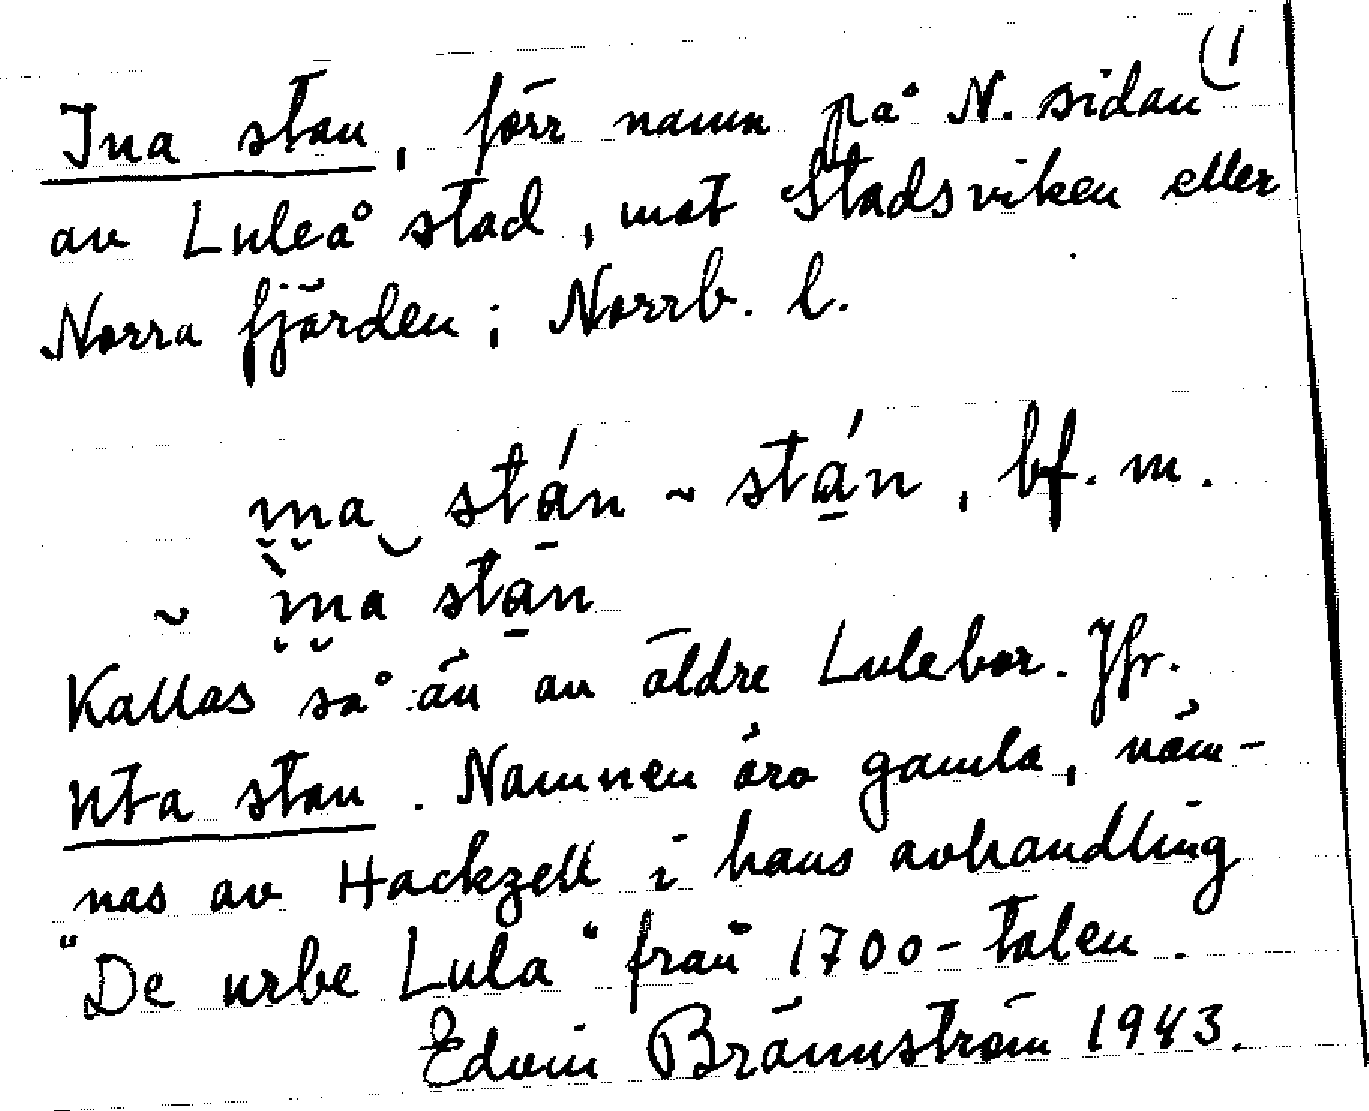 (1
Ina stan, förr namn på N. sidan
av Luleå stad, mot Stadsviken eller
Norra fjärden; Norrb. l.
ina stán ~ stán, bf. m.
~ ìna stan
Kallas så än av äldre Lulebor. Jfr.
Uta stan. Namnen äro gamla, näm-
nas av Hackzell i hans avhandling
"De urbe Lula" från 1700-talen.
Edvin Brännström 1943.